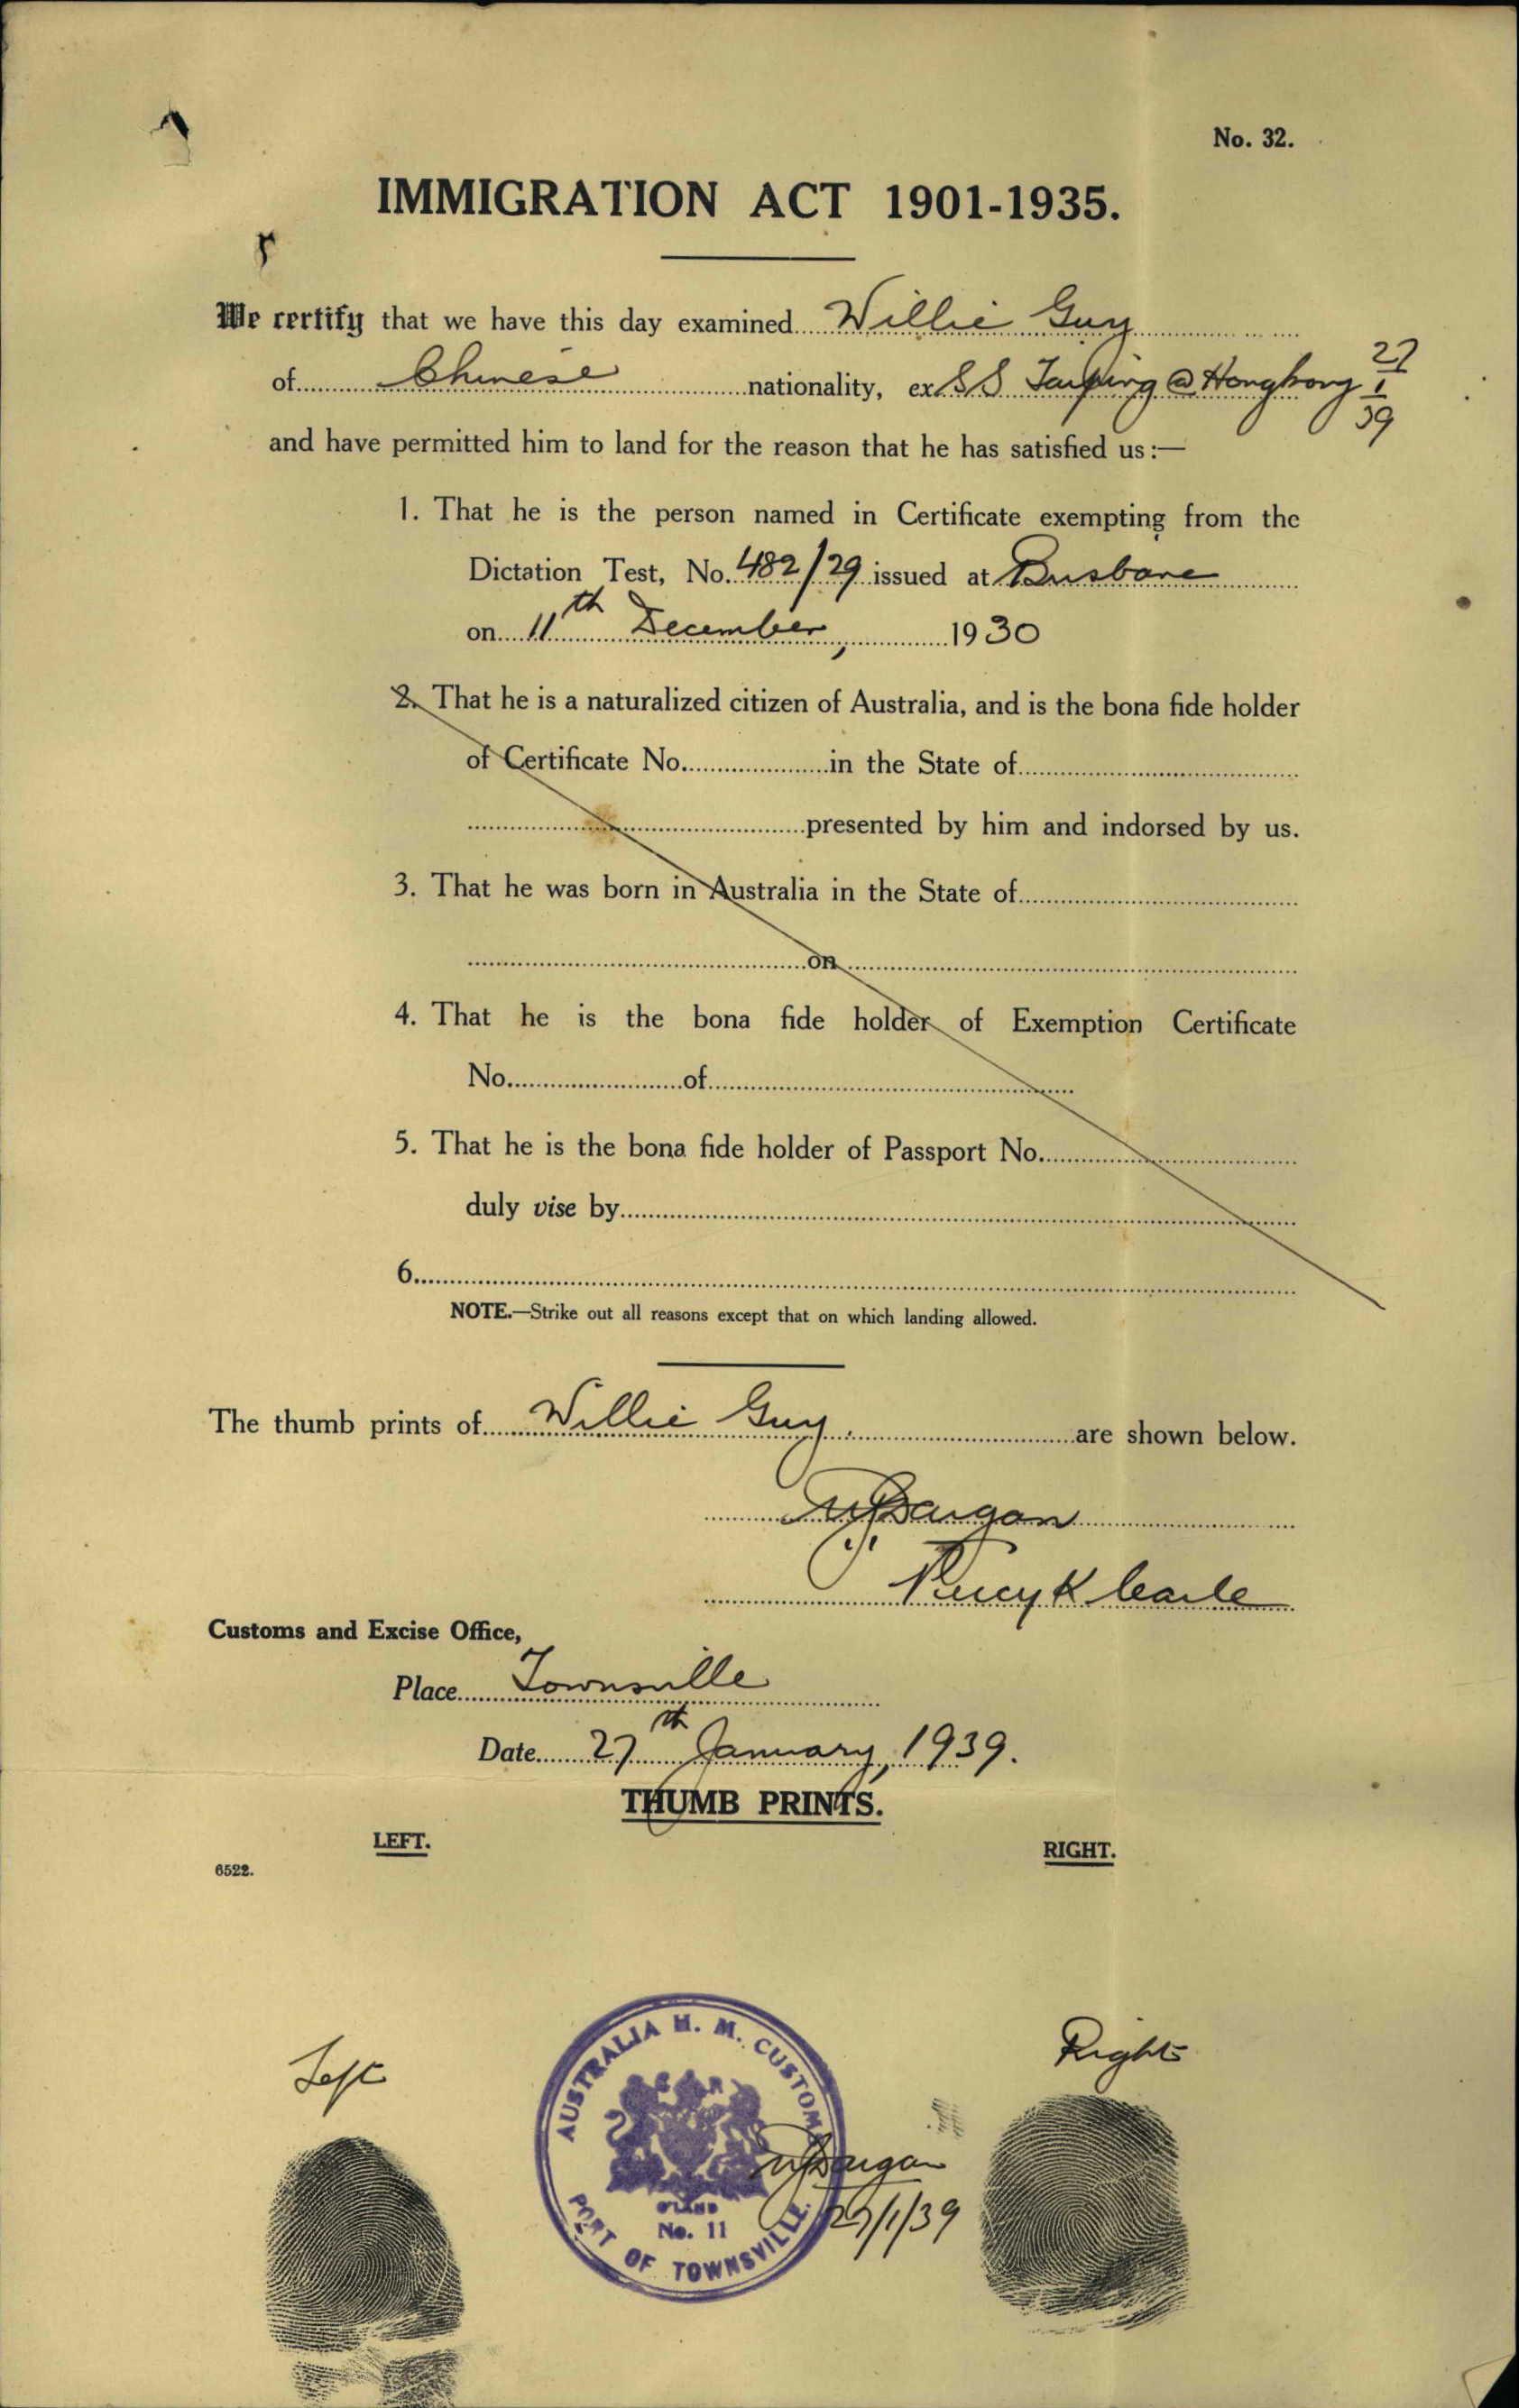 No. 32.
IMMIGRATION ACT 1901-1935.
We certify that we have this day examined Willie Guy
of Chinese nationality, ex SS Taiping @ Hongkong 27/1/39
and have permitted him to land for the reason that he has satisfied us:—
1. That he is the person named in Certificate exempting from the
Dictation Test, No. 482/29 issued at Brisbane
on 11th December, 1930
2. That he is a naturalized citizen of Australia, and is the bona fide holder
of Certificate No. in the State of
presented by him and indorsed by us.
3. That he was born in Australia in the State of
on
4. That he is the bona fide holder of Exemption Certificate
No. of
5. That he is the bona fide holder of Passport No.
duly vise by
6
NOTE.—Strike out all reasons except that on which landing allowed.
The thumb prints of Willie Guy are shown below.
Percy K
Customs and Excise Office,
Place Townsville
Date 27th January, 1939.
THUMB PRINTS.
LEFT.
RIGHT.
6522.
Left
Right
AUSTRALIA H. M. CUSTOMS
Q'LAND
No. 11
PORT OF TOWNSVILLE.
27/1/39